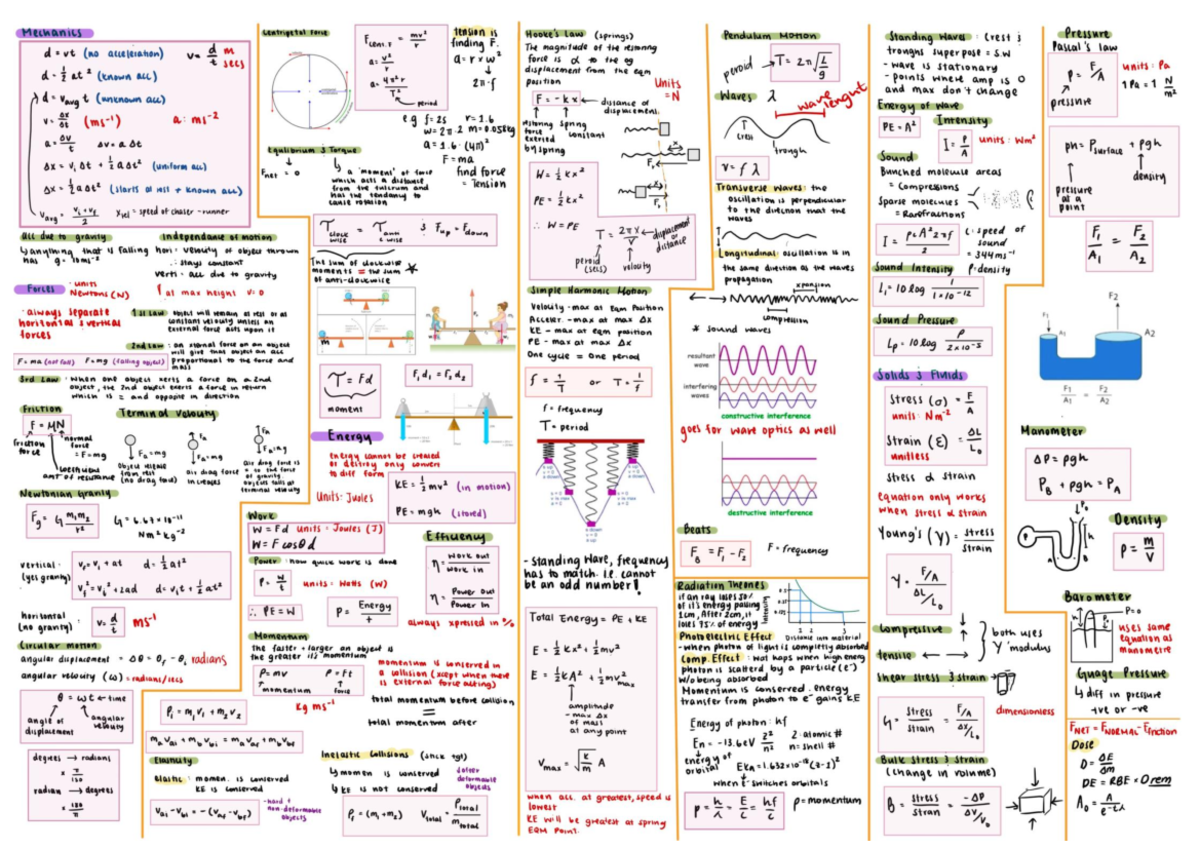 Mechanics
d = vt (no acceleration)
d = ½ at² (known acc)
d = v avg t (unknown acc)
v = Δx/Δt (ms⁻¹) a: ms⁻²
a = ΔV/Δt Δv = a Δt
Δx = vᵢ Δt + ½ a Δt² (uniform acc)
Δx = ½ a Δt² (starts at rest + known acc)
v avg = (vᵢ + v_f)/2 X rel = speed of chaser - runner
v = d/t m/secs
acc due to gravity
↳ anything that is falling has g = 10ms⁻²
Independence of motion
hori: velocity of object thrown
∴ stays constant
verti: acc due to gravity
at max height v = 0
Forces
· units Newtons (N)
· always separate horizontal & vertical forces
1st Law: object will remain at rest or at constant velocity unless an external force acts upon it
2nd Law: an external force on an object will give that object an acc proportional to the force and mass
F = ma (not fall) F = mg (falling object)
3rd Law: when one object xerts a force on a 2nd object, the 2nd object exerts a force in return which is = and opposite in direction
Friction
F = μN
friction force
normal force = F = mg
coefficient
amt of resistance
Terminal Velocity
Fg = mg
object release from rest (no drag foce)
Fa
Fg = mg
air drag force increases
Fa
Fg = mg
air drag force is = to the force of gravity. objects falls at terminal velocity
Newtonian Gravity
Fg = G m₁m₂/r² G = 6.67 × 10⁻¹¹ Nm²kg⁻²
vertical: (yes gravity)
v_f = vᵢ + at d = ½ at²
v_f² = vᵢ² + 2ad d = vᵢt + ½ at²
horizontal: (no gravity)
v = d/t ms⁻¹
Circular motion
angular displacement = Δθ = θ_f - θᵢ radians
angular velocity (ω) = radians/secs
θ = ωt ← time
angle of displacement
angular velocity
degrees → radians
× π/180
radian → degrees
× 180/π
Centripetal force
F cent. F = mv²/r
a = v²/r
a = 4π²r/T²
period
tension is finding F.
a = r × ω²
2π·f
e.g f = 2s r = 1.6
ω = 2π·2 m = 0.05kg
a = 1.6 · (4π)²
F = ma
find force = Tension
Equilibrium & Torque
F net = 0
↳ a 'moment' of force which acts a distance from the fulcrum and has the tendancy to cause rotation
τ clock wise = τ anti c wise & F up = F down
The sum of clockwise moments = the sum of anti-clockwise
τ = Fd
moment
F₁d₁ = F₂d₂
Energy
Energy cannot be created or destroy only convert to diff form
Units: Joules
KE = ½ mv² (in motion)
PE = mgh (stored)
Work
W = Fd Units: Joules (J)
W = F cosθ d
Power: how quick work is done
P = W/t units: Watts (W)
∴ PE = W P = Energy/t
Efficiency
η = work out/work in
η = Power out/Power in
always xpressed in %
Momentum
The faster + larger an object is the greater it's momentum
P = mv P = Ft
momentum force
kg ms⁻¹
momentum is conserved in a collision (xcept when there is external force acting)
total momentum before collision
=
total momentum after
Pᵢ = m₁v₁ + m₂v₂
mₐvₐᵢ + m_b v_bᵢ = mₐvₐf + m_b v_bf
Elasticity
Elastic: momen. is conserved
KE is conserved
vₐᵢ - v_bᵢ = -(vₐf - v_bf)
- hard & non-deformable objects
Inelastic Collisions (stick tgt)
↳ momen is conserved
↳ KE is not conserved
softer deformable objects
P_f = (m₁ + m₂) V total = P total/m total
Hooke's Law (springs)
The magnitude of the restoring force is α to the eq displacement from the eqm position
Units = N
F = -kx ← distance of displacement.
restoring force exerted by spring
spring constant
W = ½ kx²
PE = ½ kx²
∴ W = PE
T = 2πx/V
displacement or distance
period (secs)
velocity
Simple Harmonic Motion
Velocity - max at Eqm Position
Acceler. - max at max Δx
KE - max at eqm position
PE - max at max Δx
One cycle = One period
f = 1/T or T = 1/f
f = frequency
T = period
- standing wave, frequency has to match. i.e. cannot be an odd number!
Total Energy = PE + KE
E = ½ kx² + ½ mv²
E = ½ kA² + ½ mv² max
amplitude
- max Δx of mass at any point
V max = √(k/m) A
when acc. at greatest, speed is lowest
KE will be greatest at spring EQM Point.
Pendulum Motion
period T = 2π √(L/g)
Waves λ
wave lenght
crest
trough
v = f λ
Transverse Waves: the oscillation is perpendicular to the direction that the waves
Longitudinal: oscillation is in the same direction as the waves propagation
expansion
compression
* sound waves
resultant wave
interfering waves
constructive interference
goes for wave optics as well
destructive interference
Beats
F_B = F₁ - F₂ F = frequency
Radiation Theories
if an ray loses 50% of it's energy passing 1cm, After 2cm, it loses 75% of energy
Intensity
1 2 3
Distance into material
Photoelectric Effect
- when photon of light is completly absorbed
Comp. Effect: that haps when high energy photon is scatterd by a particle (e⁻) w/o being absorbed
Momentum is conserved. energy transfer from photon to e⁻ gains KE
Energy of photon: hf
En = -13.6eV z²/n² z: atomic # n = shell #
energy of orbital
EKα = 1.632×10⁻¹⁸ (z-1)²
when e⁻ switches orbitals
p = h/λ = E/c = hf/c p = momentum
Standing Waves: Crest & troughs superpose = S.W
- wave is stationary
- points where amp is 0 and max don't change
Energy of wave
PE = A²
Intensity
I = P/A units: Wm²
Sound
Bunched molecule areas = Compressions
Sparse molecules = Rarefractions
I = ρcA²2πf/2
c: speed of sound = 344ms⁻¹
ρ = density
Sound Intensity
Lᵢ = 10 log I/(1×10⁻¹²)
Sound Pressure
Lp = 10 log P/(2×10⁻⁵)
Solids & Fluids
Stress (σ) = F/A
units: Nm⁻²
Strain (ε) = ΔL/L₀
unitless
stress α strain
equation only works when stress α strain
Young's (Y) = stress/strain
Y = (F/A)/(ΔL/L₀)
Compressive ↑
tensile →
both uses Y modulus
Shear stress & strain
G = stress/strain = (F/A)/(ΔX/L₀)
dimensionless
Bulk stress & strain
(change in volume)
B = stress/stran = -ΔP/(ΔV/V₀)
Pressure
Pascal's law
P = F/A
pressure
units: Pa
1 Pa = 1 N/m²
ph = P surface + ρgh
pressure at a point
density
F₁/A₁ = F₂/A₂
F2
F1
A1
A2
F1/A1 = F2/A2
Manometer
ΔP = ρgh
P_B + ρgh = P_A
P₀
P
h
B
Density
ρ = m/V
Barometer
P=0
h
uses same equation as manometre
Guage Pressure
↳ diff in pressure +ve or -ve
F NET = F NORMAL - F friction
Dose
D = ΔE/Δm
DE = RBE × D rem
A₀ = A/e^-tλ